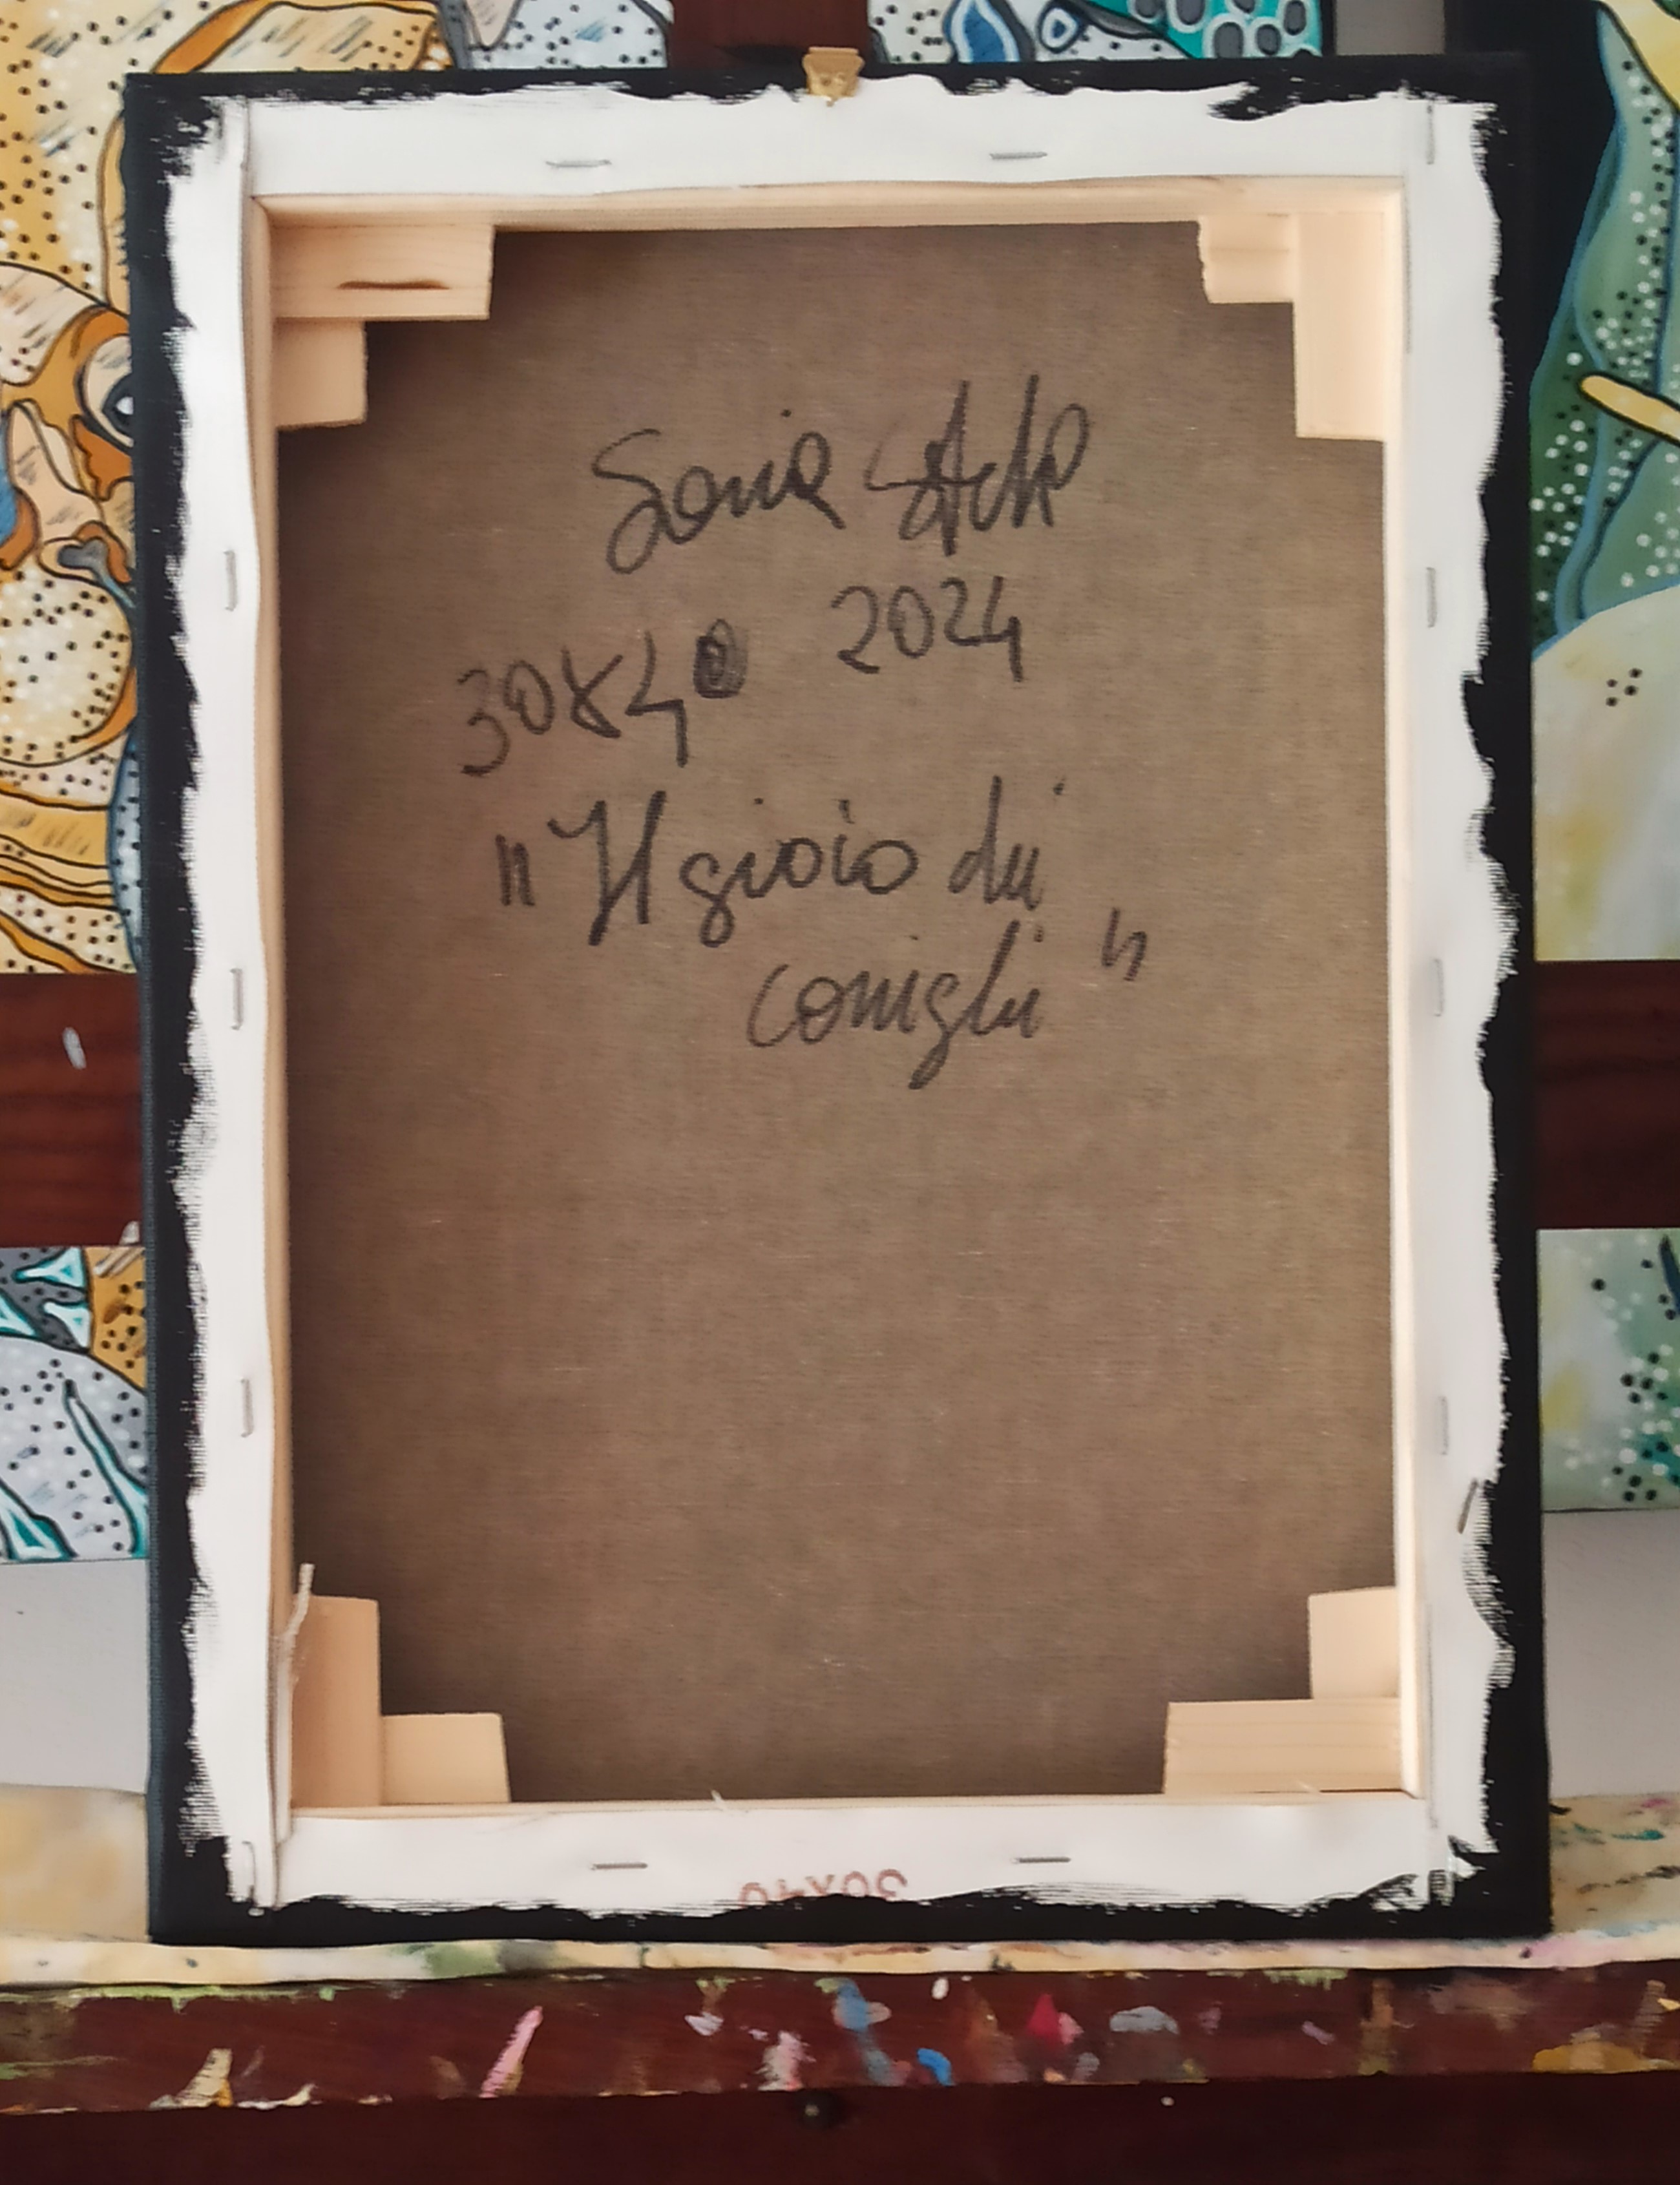 Sonia
30x40 2024
"Il gioio dei
conigli"
30x40